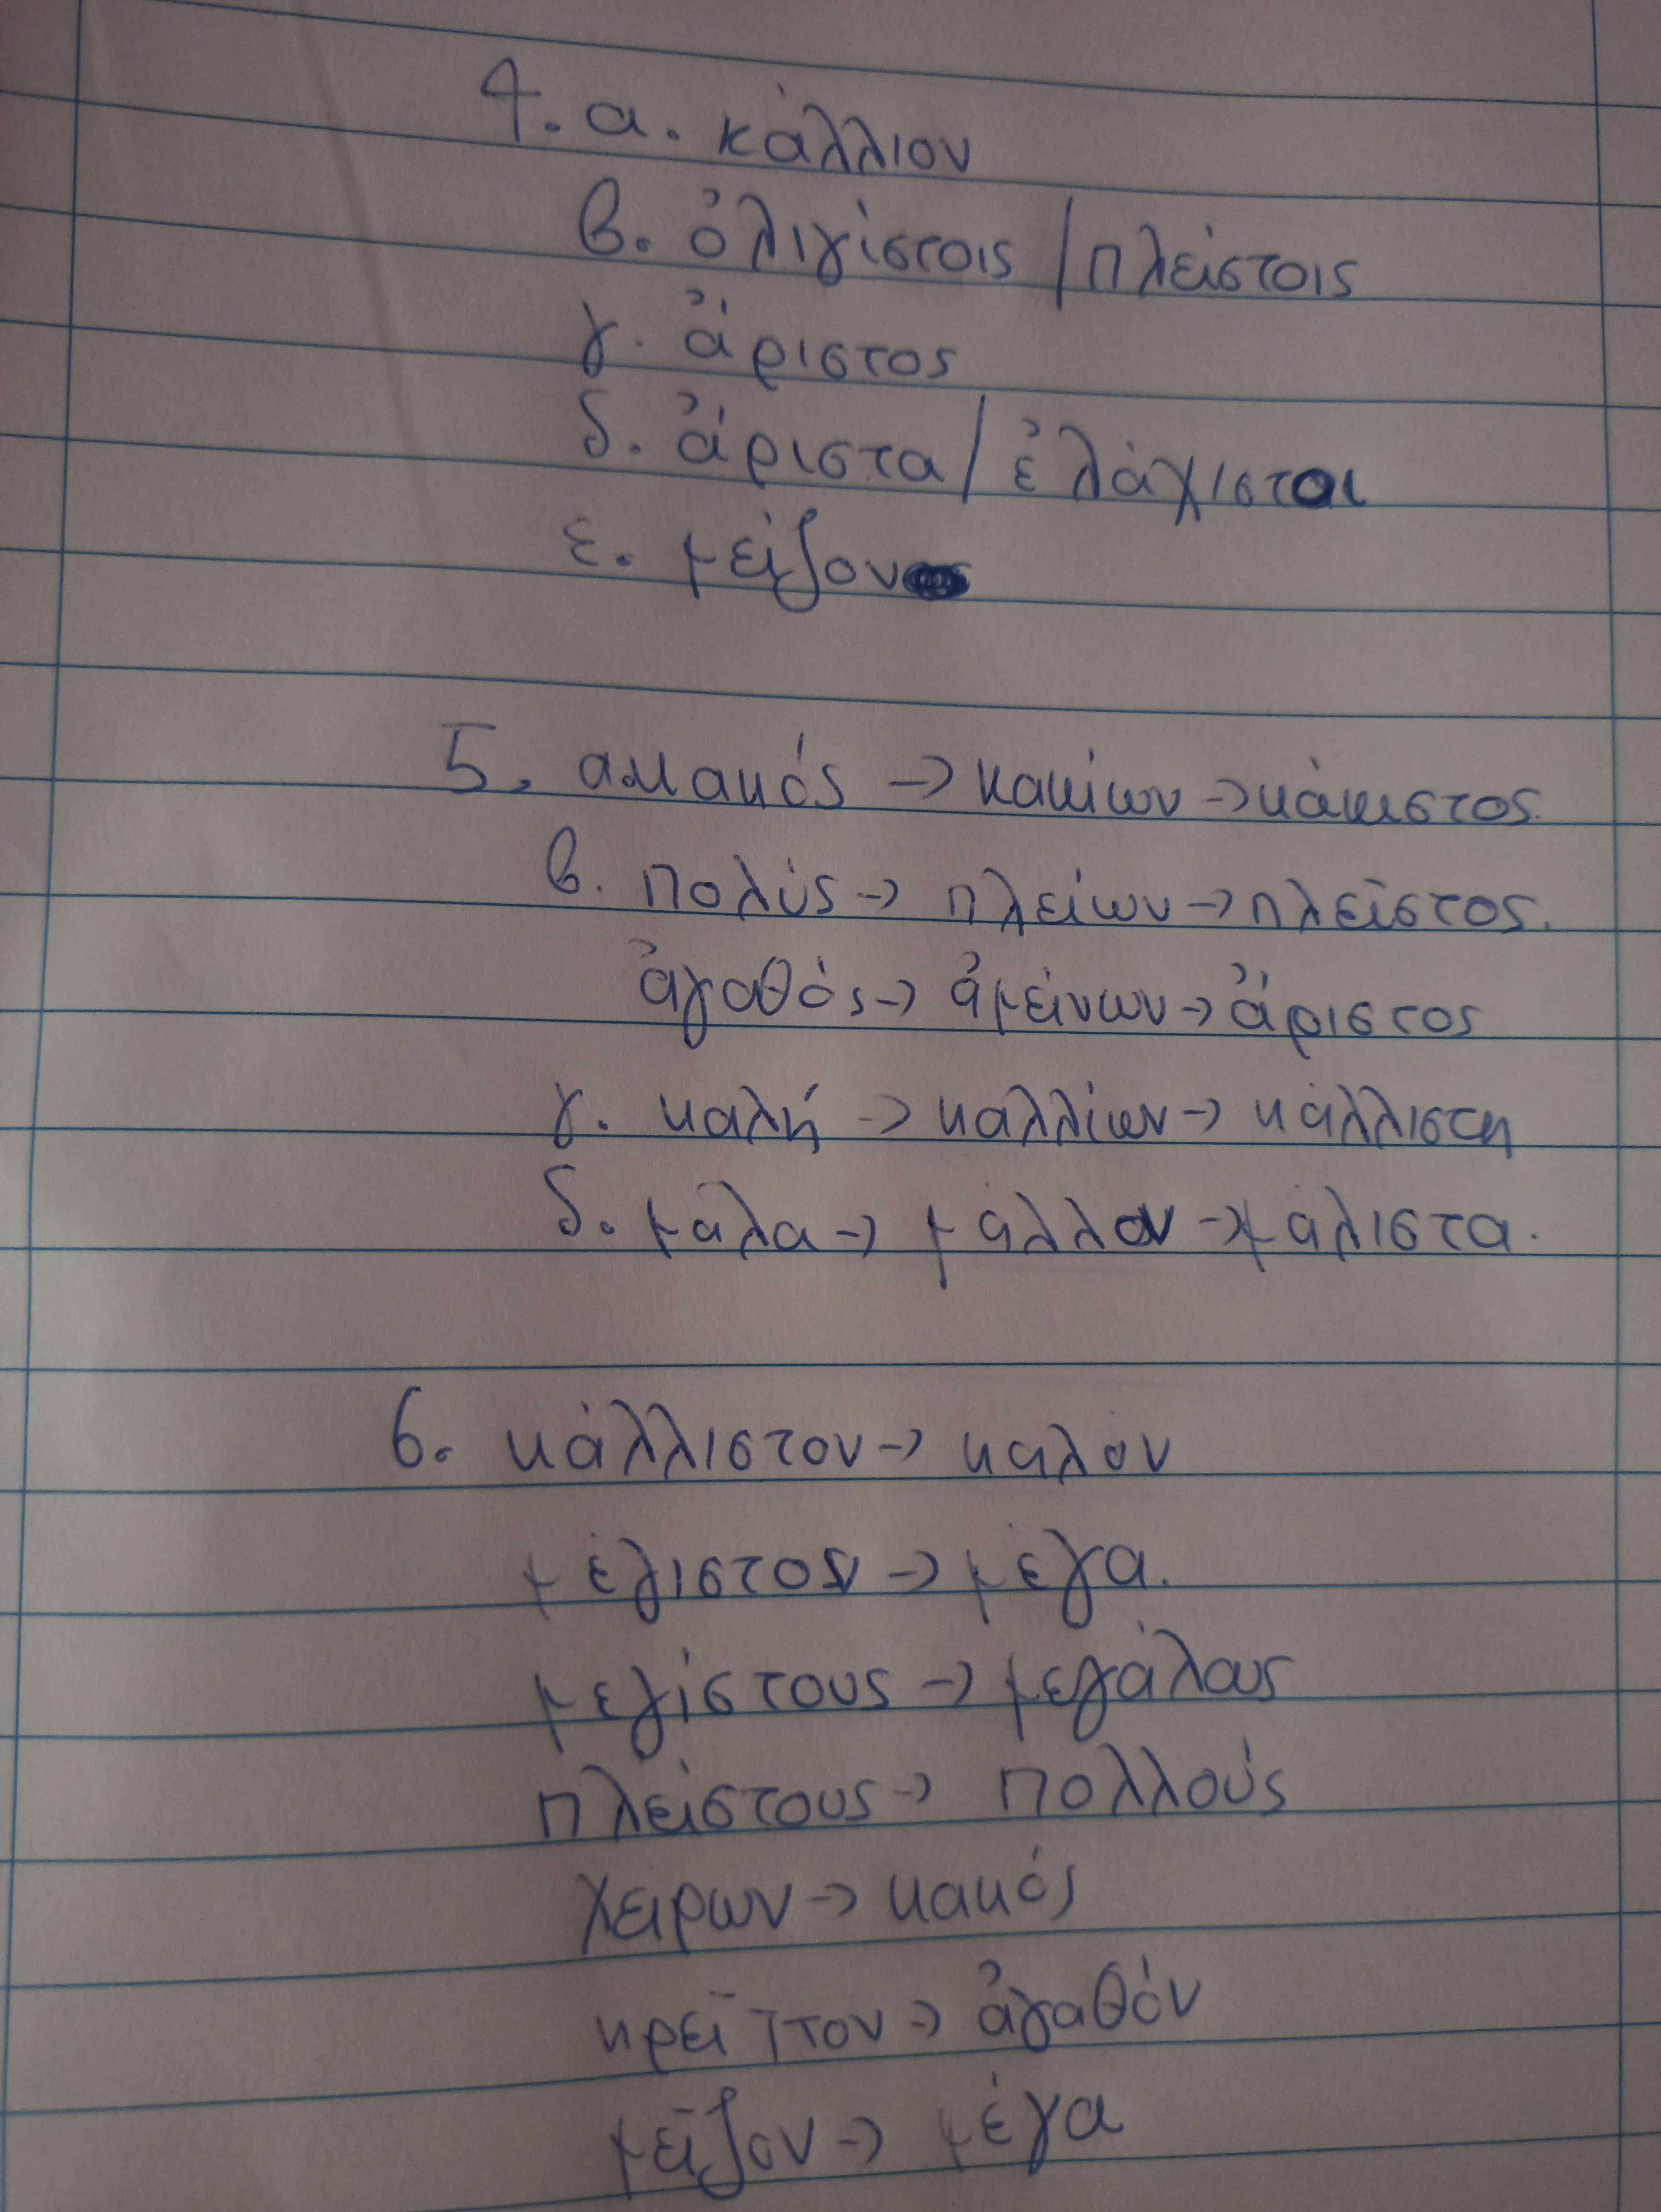 4. α. κάλλιον
β. ὀλιγίστοις / πλείστοις
γ. ἄριστος
δ. ἄριστα / ἐλάχισται
ε. μείζον
5. α. κακός → κακίων → κάκιστος.
β. πολύς → πλείων → πλεῖστος.
ἀγαθός → ἀμείνων → ἄριστος
γ. καλή → καλλίων → κάλλιστη
δ. μάλα → μάλλον → μάλιστα.
6. κάλλιστον → καλόν
μέγιστον → μέγα.
μεγίστους → μεγάλους
πλείστους → πολλούς
χείρων → κακός
κρεῖττον → ἀγαθόν
μεῖζον → μέγα